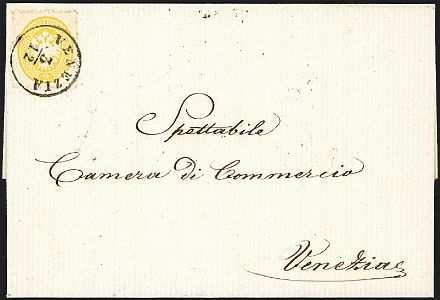 VENEZIA
3/12
Spettabile
Camera di Commercio
Venezia